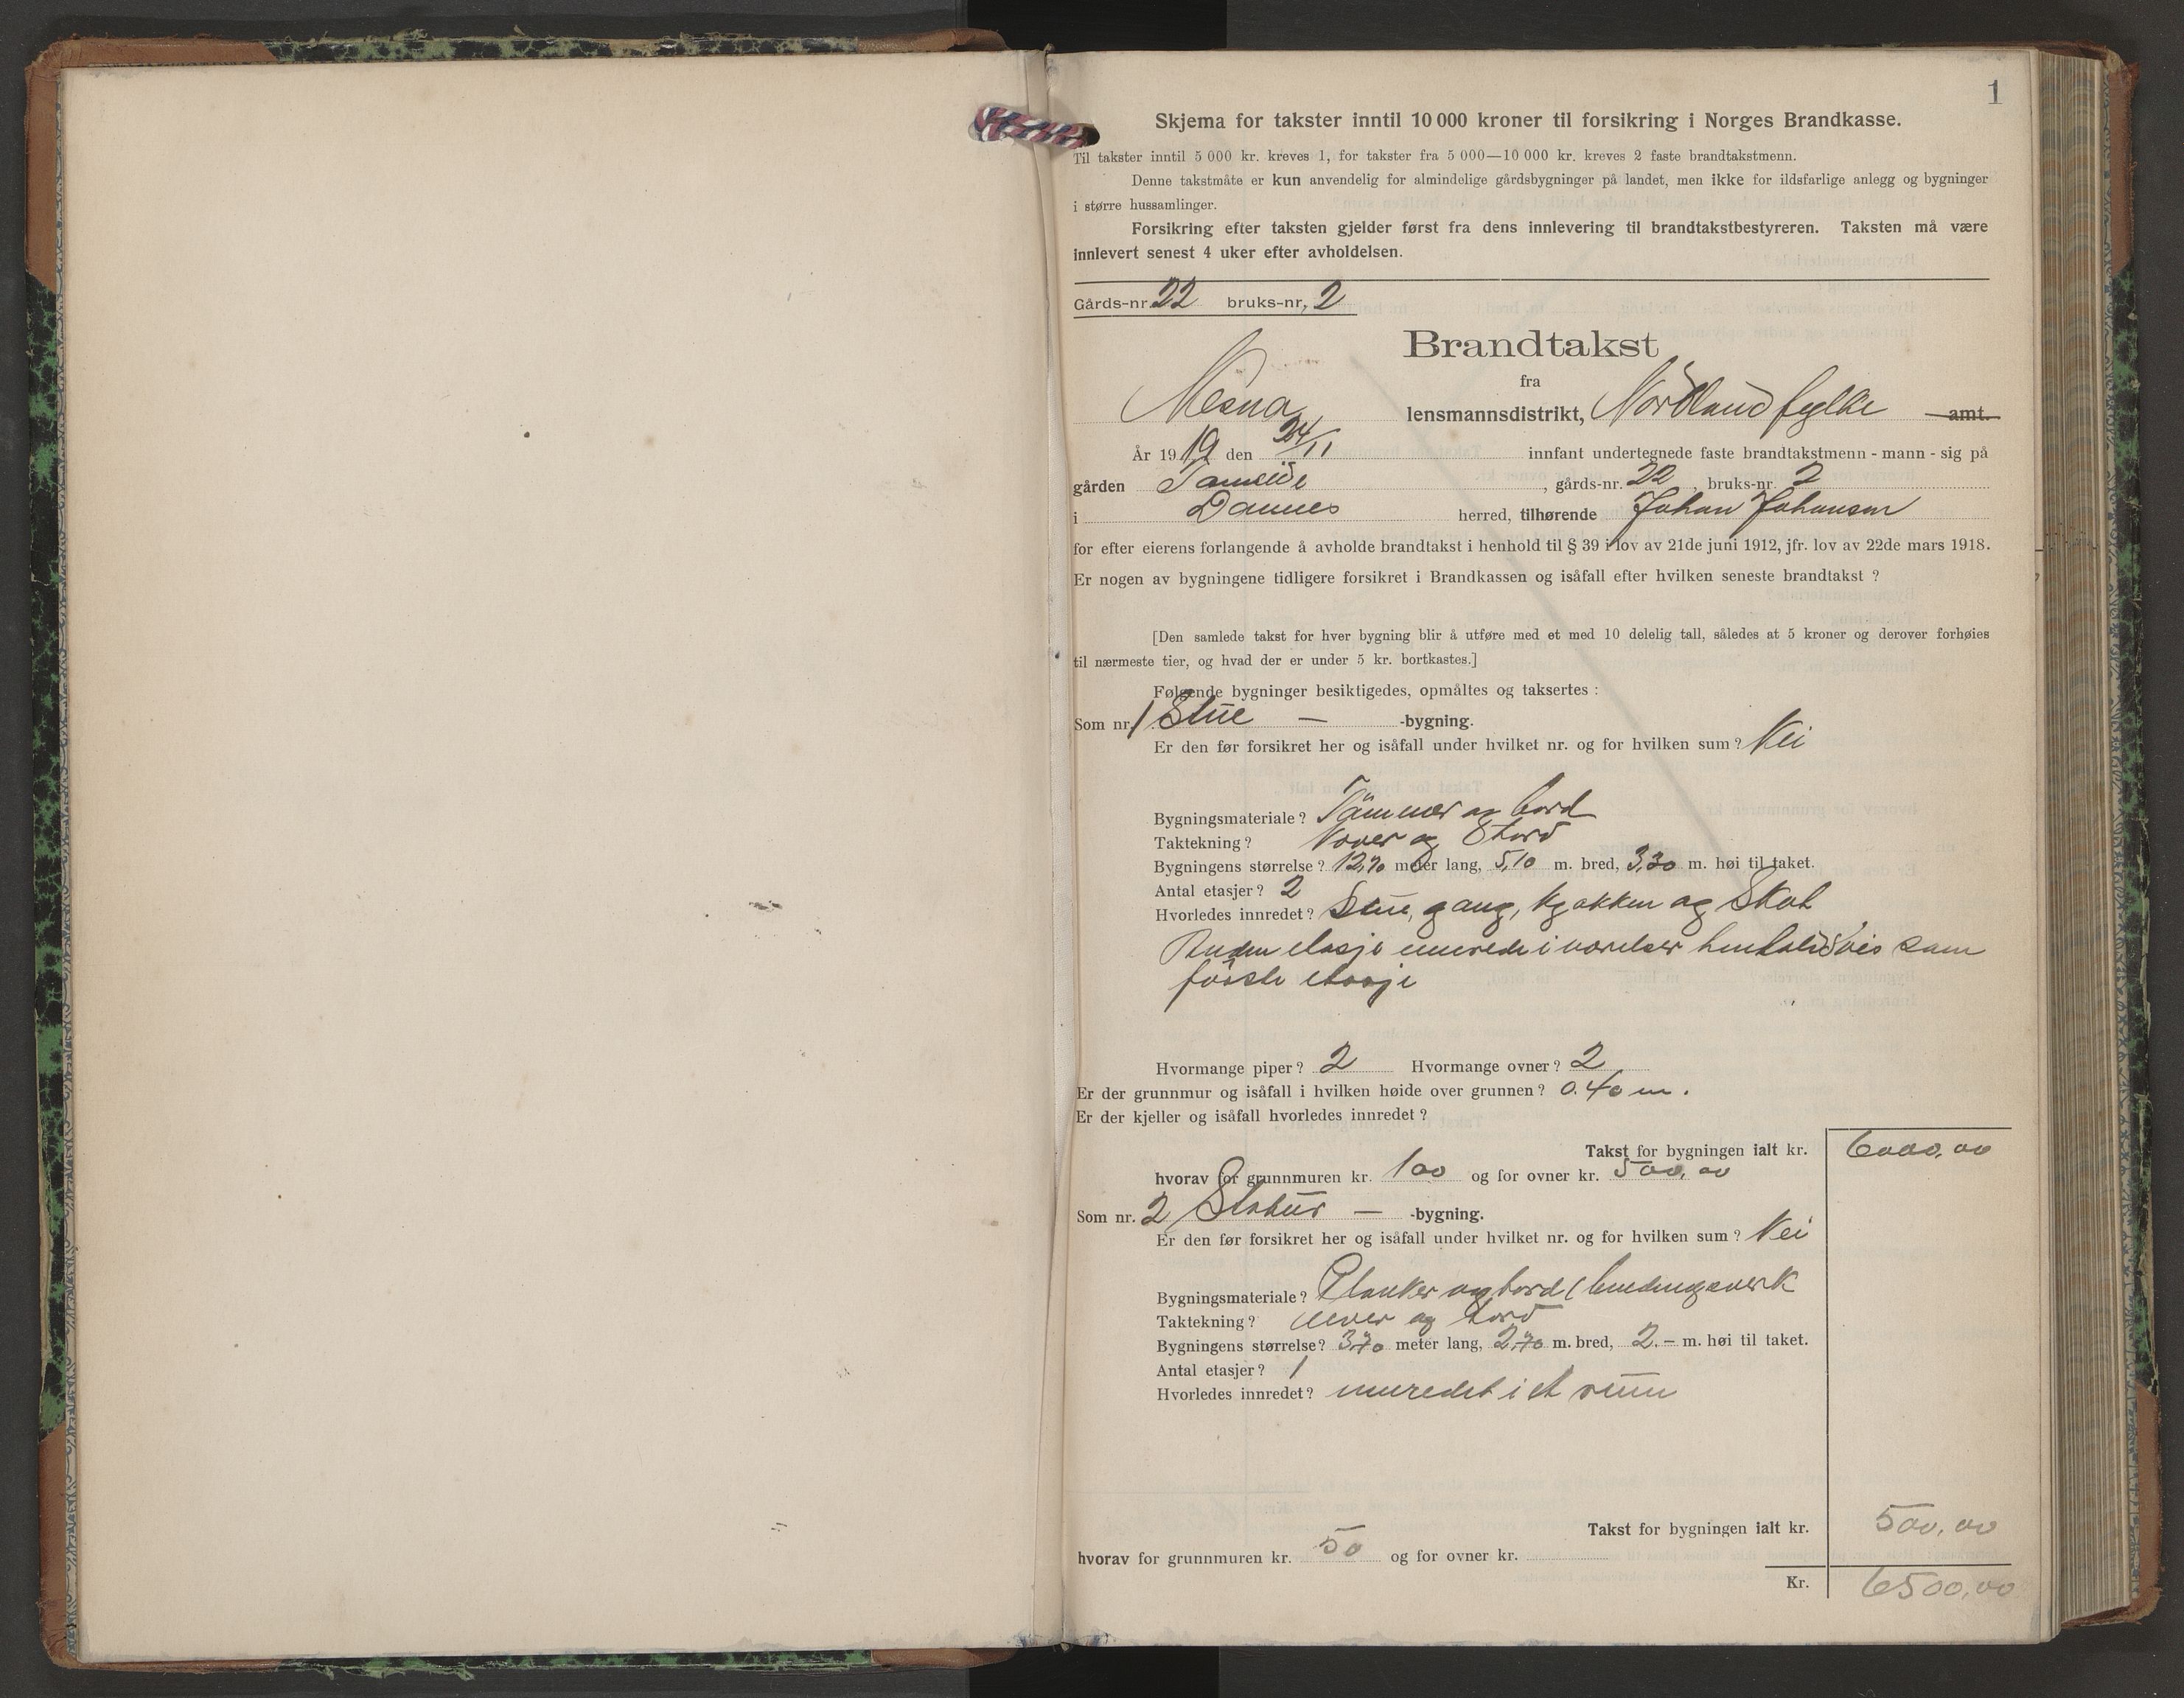 1
Skjema for takster inntil 10 000 kroner til forsikring i Norges Brandkasse.
Til takster inntil 5 000 kr. kreves 1, for takster fra 5 000—10 000 kr. kreves 2 faste brandtakstmenn.
Denne takstmåte er kun anvendelig for almindelige gårdsbygninger på landet, men ikke for ildsfarlige anlegg og bygninger
i større hussamlinger.
Forsikring efter taksten gjelder først fra dens innlevering til brandtakstbestyreren. Taksten må være
innlevert senest 4 uker efter avholdelsen.
Gårds-nr. 22 bruks-nr. 2
Brandtakst
fra
Nesna lensmannsdistrikt, Nordland fylke amt.
År 1919 den 24/11 innfant undertegnede faste brandtakstmenn - mann - sig på
gården , gårds-nr. 22, bruks-nr. 2
i Dønnes herred, tilhørende Johan Johansen
for efter eierens forlangende å avholde brandtakst i henhold til § 39 i lov av 21de juni 1912, jfr. lov av 22de mars 1918.
Er nogen av bygningene tidligere forsikret i Brandkassen og isåfall efter hvilken seneste brandtakst ?
[Den samlede takst for hver bygning blir å utføre med et med 10 delelig tall, således at 5 kroner og derover forhøies
til nærmeste tier, og hvad der er under 5 kr. bortkastes.]
Følgende bygninger besiktigedes, opmåltes og taksertes :
Som nr. 1 Stue — -bygning.
Er den før forsikret her og isåfall under hvilket nr. og for hvilken sum ? Nei
Bygningsmateriale ? Tømmer og bord
Taktekning ? Never og
Bygningens størrelse ? 12,70 meter lang, 5,10 m. bred, 3,30 m. høi til taket.
Antal etasjer ? 2
Hvorledes innredet ? Stue, gang, kjøkken og
Anden etasje innrede i værelser som
første etasje
Hvormange piper ? 2 Hvormange ovner ? 2
Er der grunnmur og isåfall i hvilken høide over grunnen ? 0.40 m.
Er der kjeller og isåfall hvorledes innredet ?
Takst for bygningen ialt kr. 6000,00
hvorav for grunnmuren kr. 100 og for ovner kr. 500,00
Som nr. 2 Stabur — -bygning.
Er den før forsikret her og isåfall under hvilket nr. og for hvilken sum ? Nei
Bygningsmateriale ? Planker og bord (bindingsverk
Taktekning ? never og
Bygningens størrelse ? 3,70 meter lang, 2,70 m. bred, 2.– m. høi til taket.
Antal etasjer ? 1
Hvorledes innredet ? innredet i et rum
Takst for bygningen ialt kr. 500,00
hvorav for grunnmuren kr. 50 og for ovner kr.
Kr. 6500,00